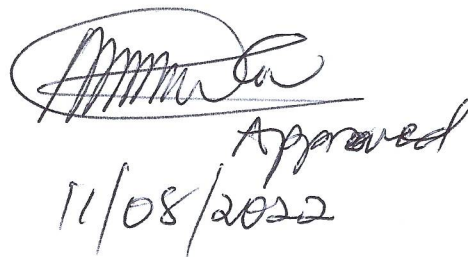 Approved
11/08/2022